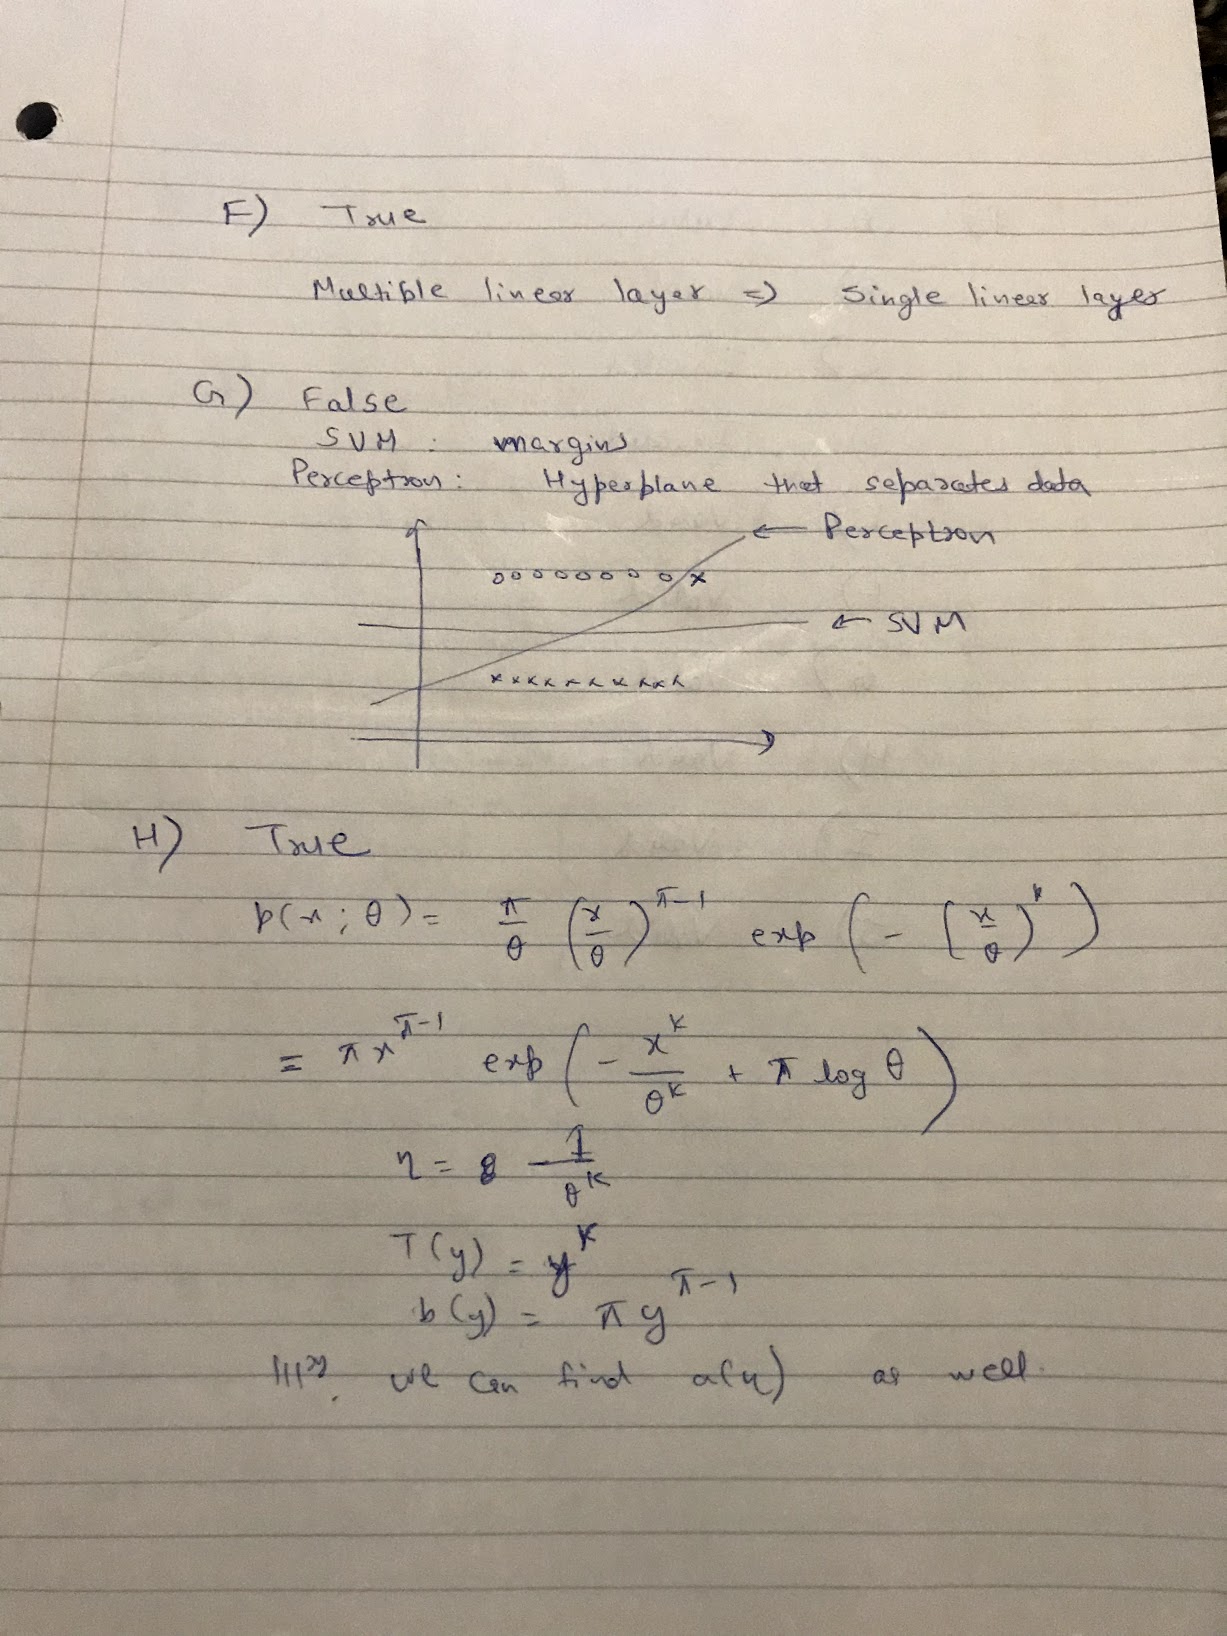 F) True
Multiple linear layer => Single linear layer
G) False
SVM : margins
Perceptron : Hyperplane that separates data
← Perceptron
o o o o o o o o o x
← SVM
x x x x x x x x x x
H) True
p(x; θ) = π/θ (x/θ)^(π-1) exp(-(x/θ)^k)
= π x^(π-1) exp(-x^k/θ^k + π log θ)
η = -1/θ^k
T(y) = y^k
b(y) = π y^(π-1)
|||ry, we can find a(η) as well.